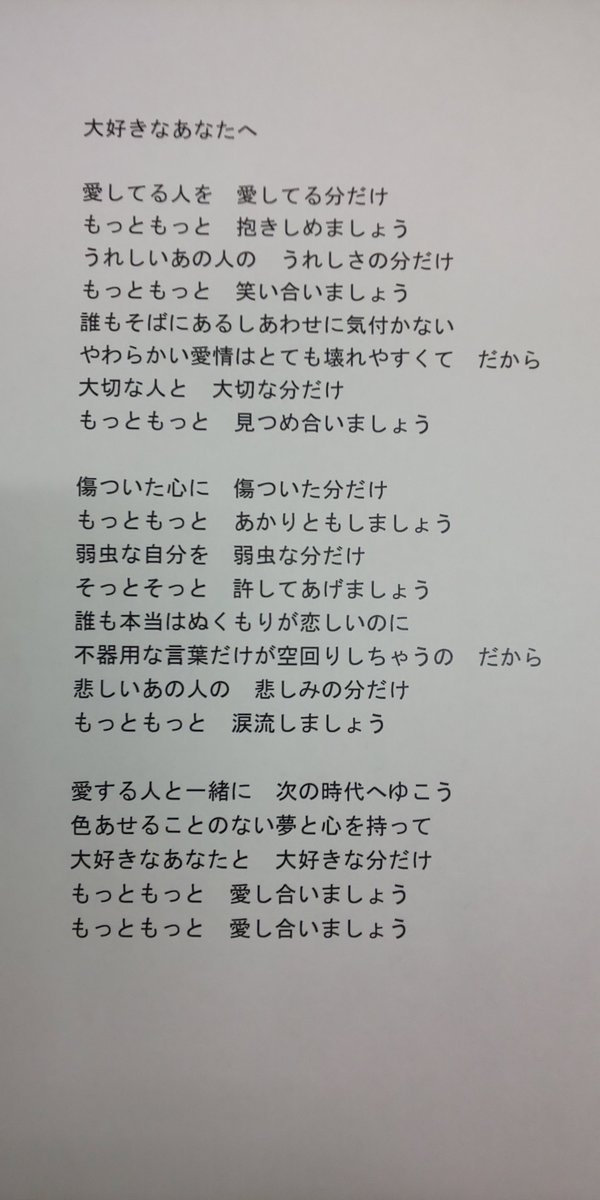 大好きなあなたへ
愛してる人を　愛してる分だけ
もっともっと　抱きしめましょう
うれしいあの人の　うれしさの分だけ
もっともっと　笑い合いましょう
誰もそばにあるしあわせに気付かない
やわらかい愛情はとても壊れやすくて　だから
大切な人と　大切な分だけ
もっともっと　見つめ合いましょう
傷ついた心に　傷ついた分だけ
もっともっと　あかりともしましょう
弱虫な自分を　弱虫な分だけ
そっとそっと　許してあげましょう
誰も本当はぬくもりが恋しいのに
不器用な言葉だけが空回りしちゃうの　だから
悲しいあの人の　悲しみの分だけ
もっともっと　涙流しましょう
愛する人と一緒に　次の時代へゆこう
色あせることのない夢と心を持って
大好きなあなたと　大好きな分だけ
もっともっと　愛し合いましょう
もっともっと　愛し合いましょう